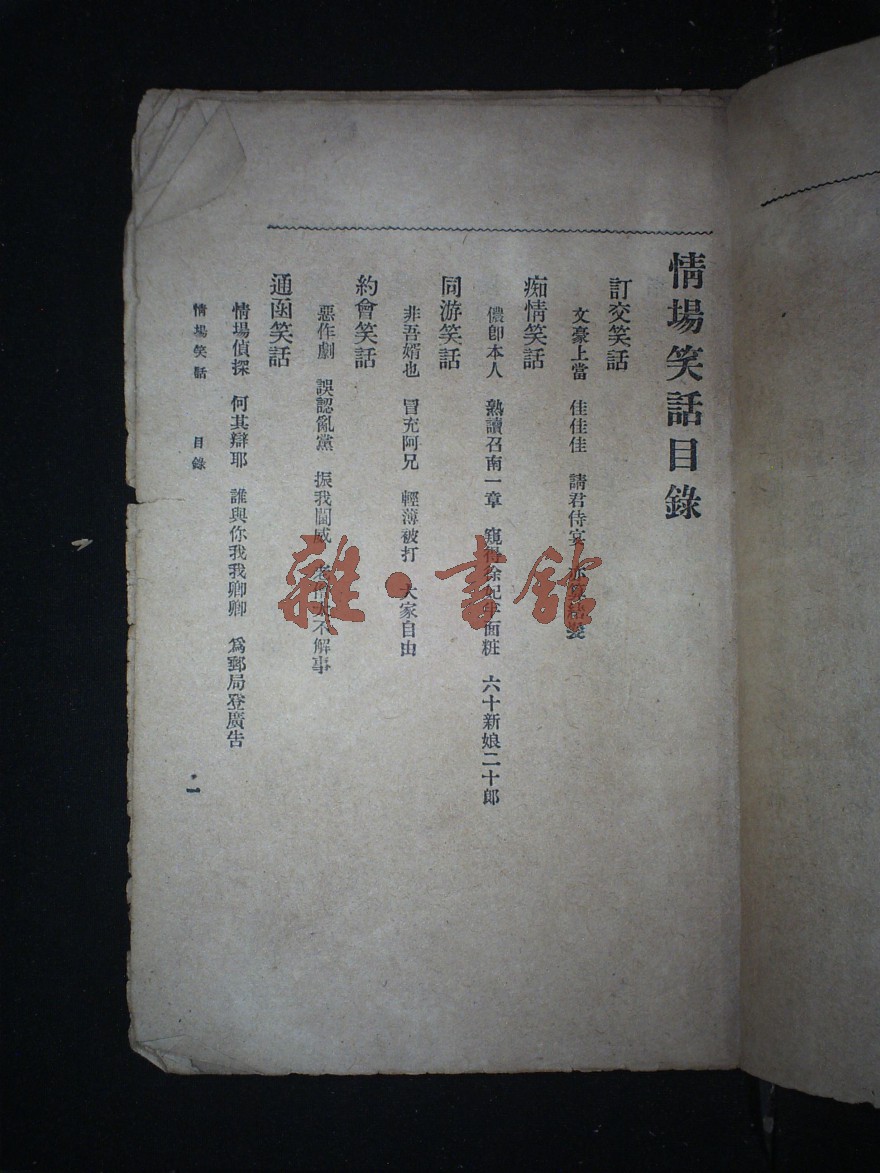 情場笑話目錄
訂交笑話
文豪上當　佳佳佳　請君侍宴
痴情笑話
儂卽本人　熟讀召南一章　窺得徐妃半面粧　六十新娘二十郎
同游笑話
非吾婿也　冒充阿兄　輕薄被打　大家自由
約會笑話
惡作劇　誤認亂黨　振我閫威　不解事
通函笑話
情場偵探　何其辯耶　誰與你我我卿卿　爲郵局登廣告
情場笑話　目錄
一
雜·書館